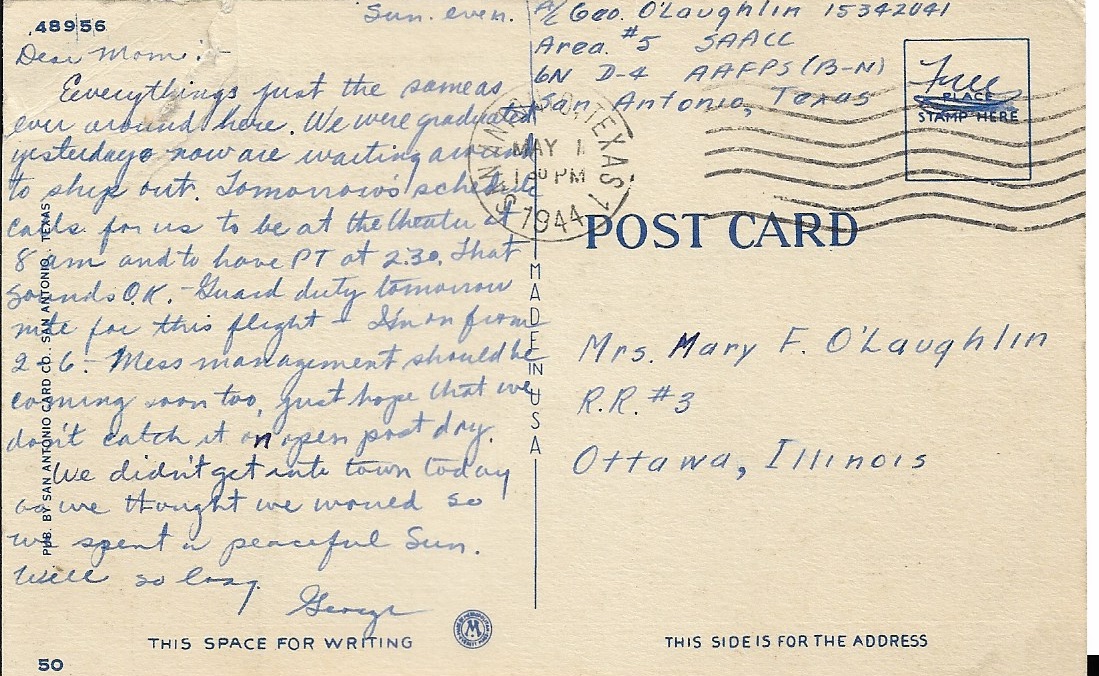 48956
Sun. even.
Dear Mom:-
Eeverythings just the same as
ever around here. We were graduated
yesterday & now are waiting around
to ship out. Tomorrow's schedule
calls for us to be at the theater at
8 am and to have PT at 2:30. That
sounds O.K. - Guard duty tomorrow
nite for this flight - I'm on from
2-6. - Mess management should be
coming soon too, just hope that we
don't catch it on open post day.
We didn't get into town today
as we thought we would so
we spent a peaceful Sun.
Well so long.
George
THIS SPACE FOR WRITING
50
PUB. BY SAN ANTONIO CARD CO. SAN ANTONIO, TEXAS
MADE IN USA
A/C Geo. O'Laughlin 15342041
Area #5 SAACC
6N D-4 AAFPS (B-N)
San Antonio, Texas
Free
PLACE
STAMP HERE
SAN ANTONIO, TEXAS
MAY 1
PM
1944
POST CARD
Mrs. Mary F. O'Laughlin
R.R. #3
Ottawa, Illinois
THIS SIDE IS FOR THE ADDRESS